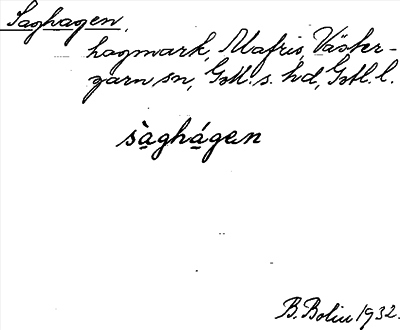 Saghagen,
hagmark, Mafrids, Väster-
garn sn, Gotl. s. hd, Gotl. l.
sàghágen
B. Bolin 1932.